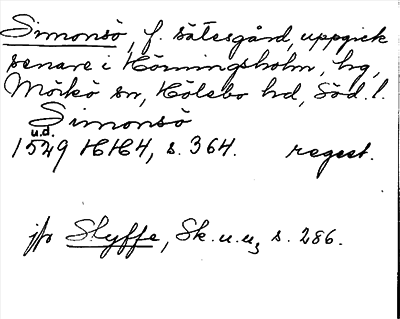 Simonsö, f. sätesgård, uppgick
senare i Hörningsholm, hg,
Mörkö sn, Hölebo hd, Söd. l.
Simonsö
u.d.
1529 HH4, s. 364. regest.
jfr Styffe, Sk.u.u, s. 286.